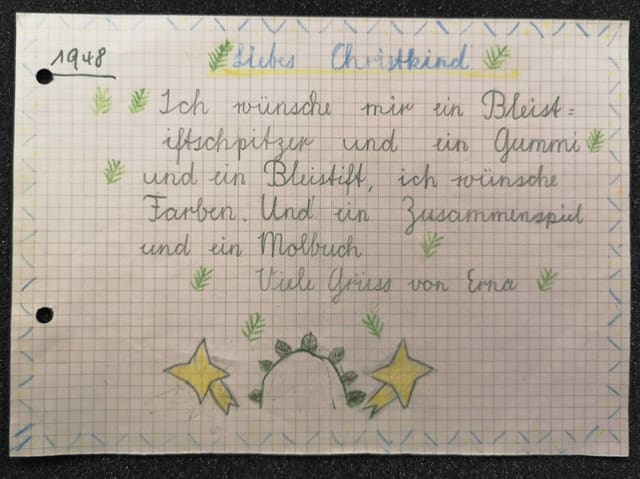 1948
Liebes Christkind
Ich wünsche mir ein Bleist=
iftschpitzer und ein Gummi
und ein Bleistift, ich wünsche
Farben. Und ein Zusammenspiel
und ein Molbuch
Viele Grüss von Erna